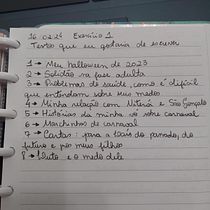 16.02.24 Exercício 1
Textos que eu gostaria de escrever
1 → Meu halloween de 2023
2 → Solidão na fase adulta
3 → Problemas de saúde, como é difícil
que entendam sobre meus medos
4 → Minha relação com Niterói e São Gonçalo
5 → Histórias da minha vó sobre carnaval
6 → Marchinhas de carnaval
7 → Cartas: para a do passado, do
futuro e pros meus filhos
8 → Luto e o medo dele